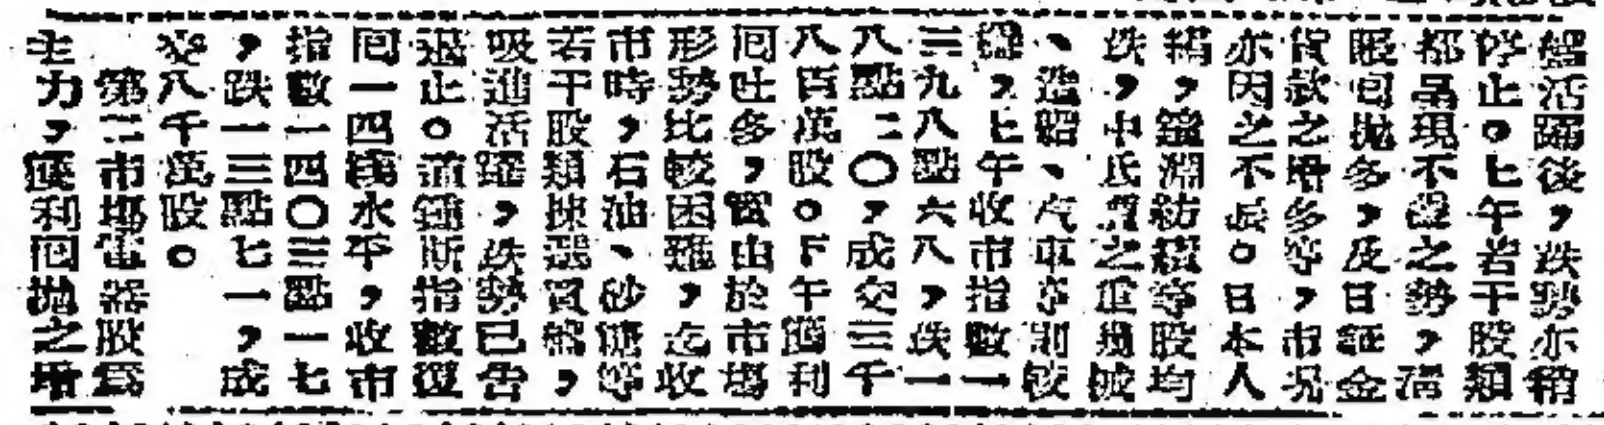 盤活躍後，跌勢亦稍
停止。上午若干股類
都呈現不儘之勢，需
眼回拋多，及日証金
貨款之增多等，市况
亦因之不振。日本人
絹，鐘淵紡績等股均
跌，中氏
、造船、汽車等則較
，上午收市指數一
三九八點六八，跌一
八點二〇，成交三千
八百萬股。下午獲利
回吐多，實由於市場
形勢比較困難，迄收
市時，石油、砂糖等
若干股類揀選買
吸進活躍，跌勢已告
遏止。道鍾斯指數復
回一四　水平，收市
指數一四〇三點一七
，跌一三點七一，成
交八千萬股。
第二市場電器股為
主力，獲利回拋之增